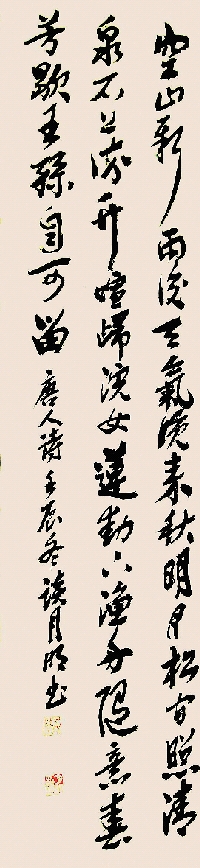 空山新雨后天氣晚来秋明月松间照清
泉石上流竹喧歸浣女蓮動下漁舟隨意春
芳歇王孫自可留 唐人诗壬辰冬读月明书